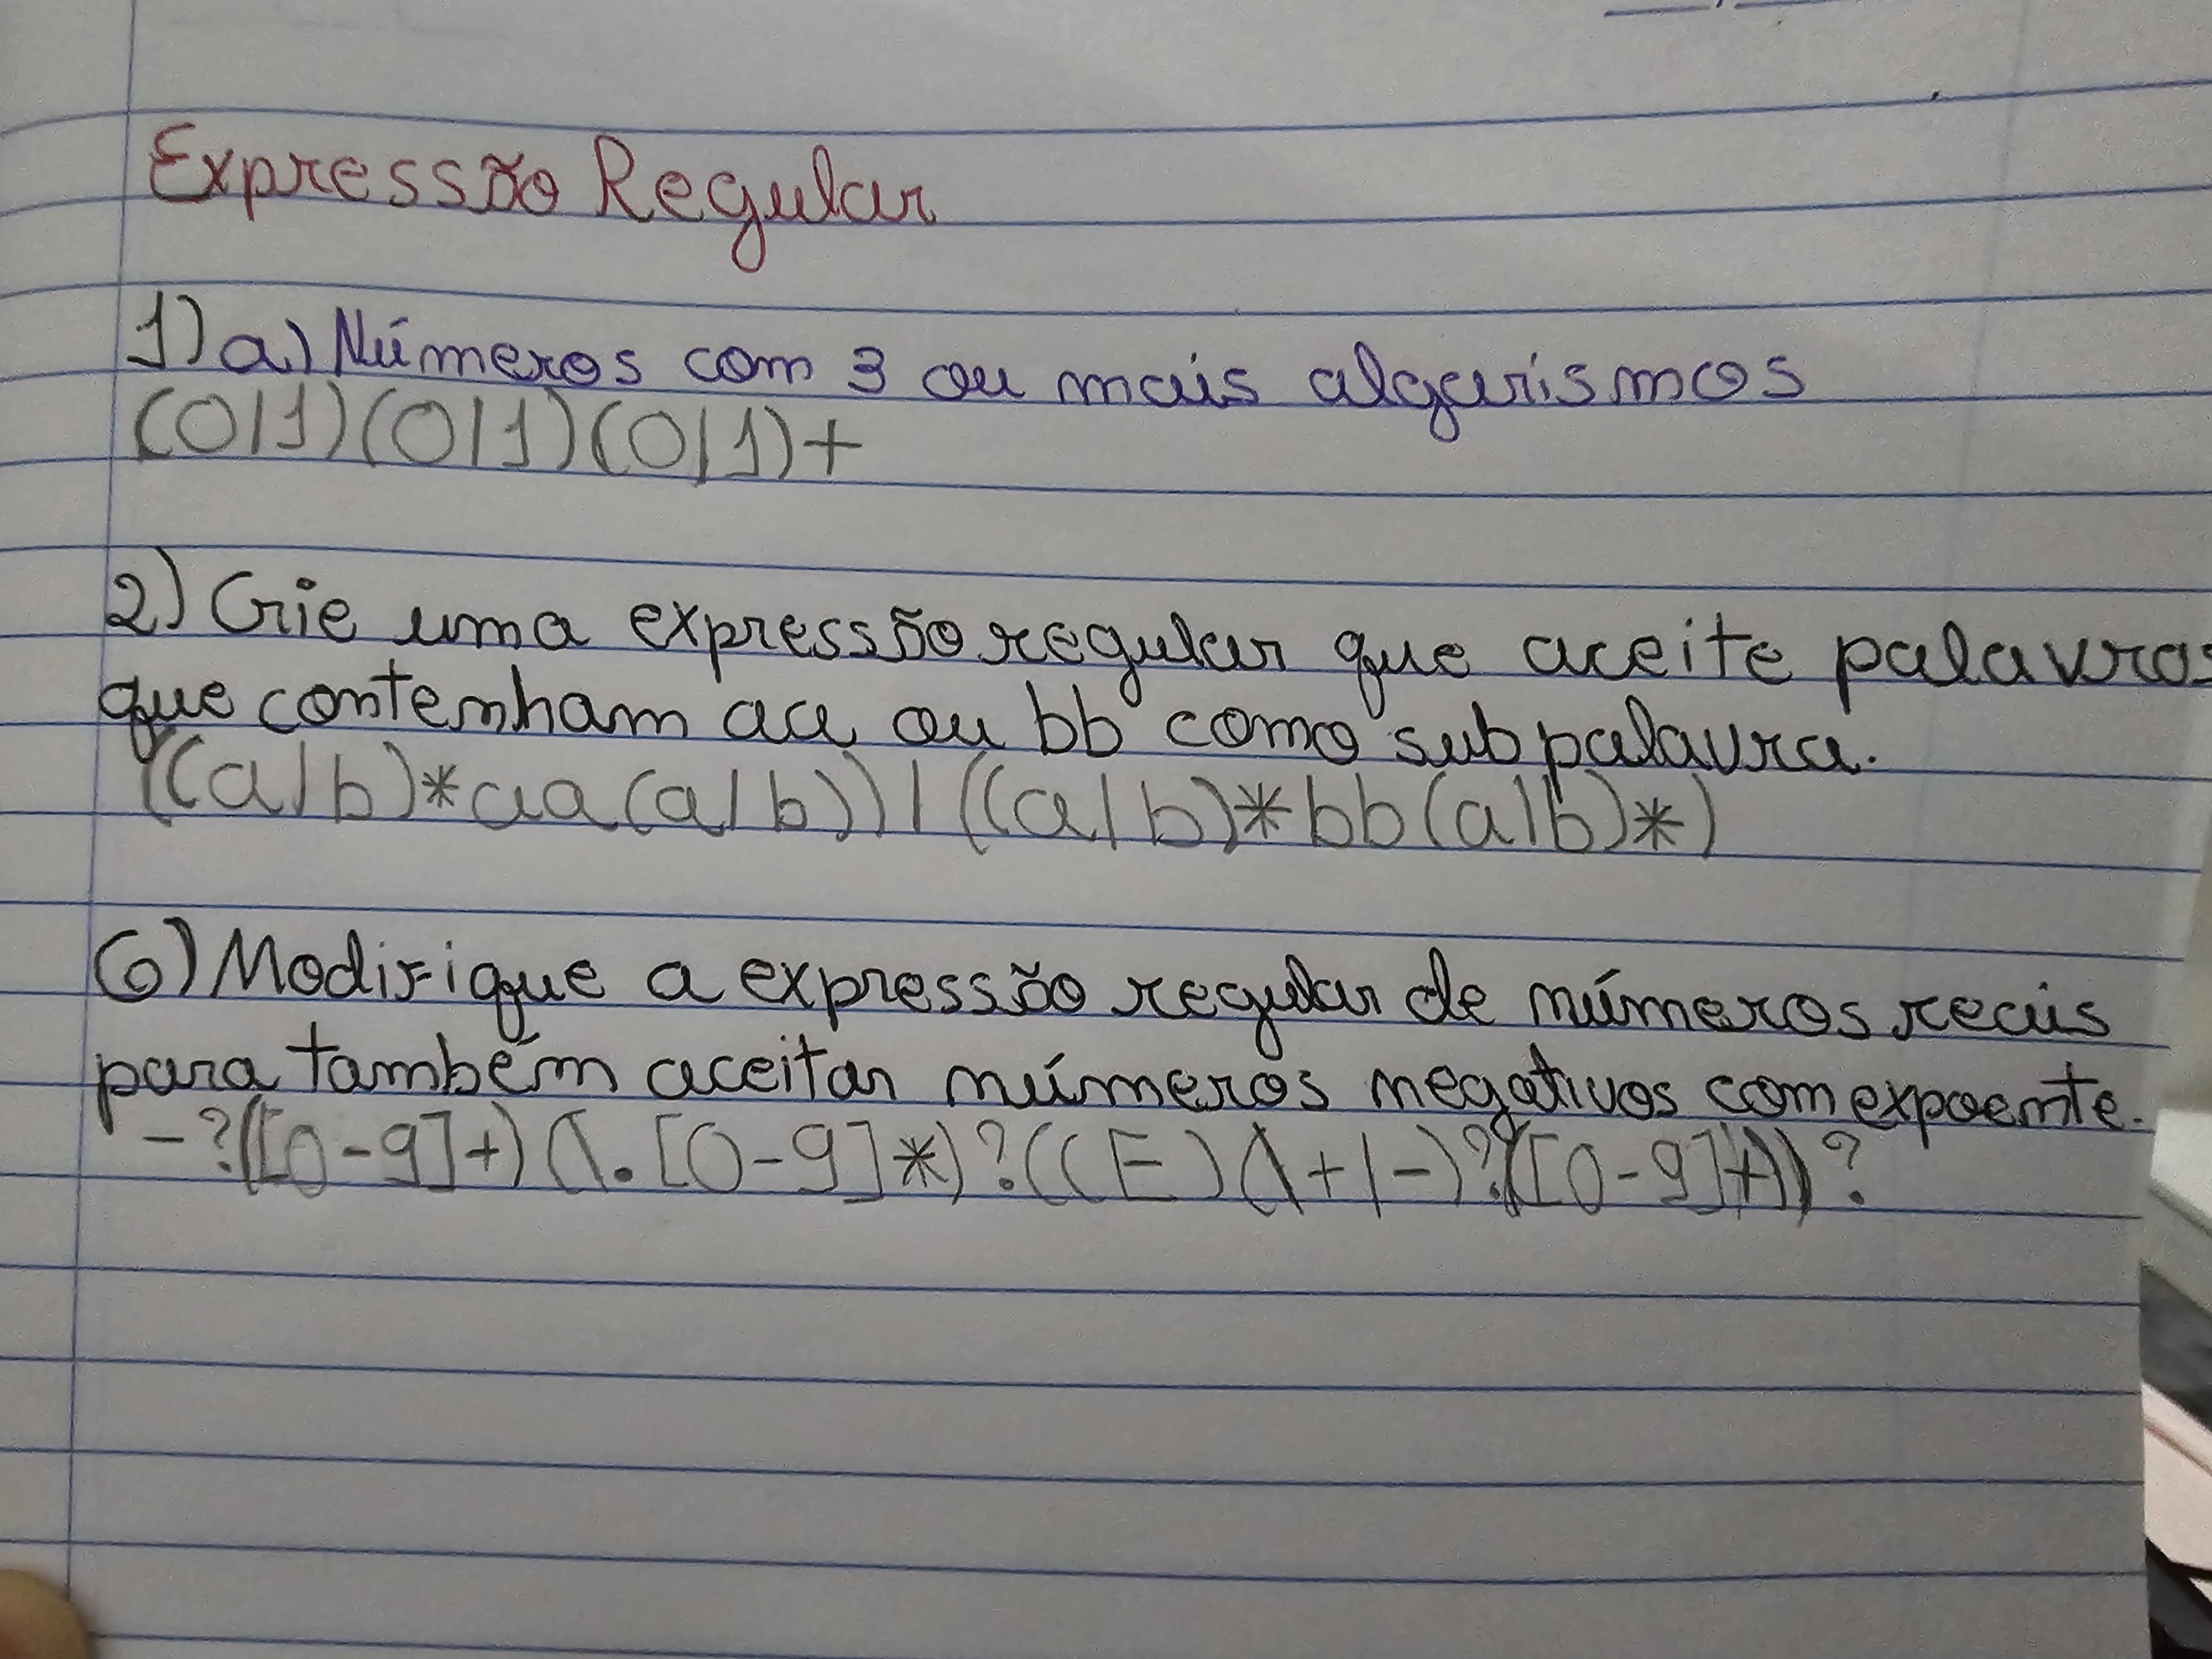 Expressão Regular
1) a) Números com 3 ou mais algarismos
(0|1)(0|1)(0|1)+
2) Crie uma expressão regular que aceite palavras
que contenham aa ou bb como subpalavra.
((a|b)*aa(a|b))|((a|b)*bb(a|b)*)
6) Modifique a expressão regular de números reais
para também aceitar números negativos com expoente.
-?([0-9]+)(\.[0-9]*)?((E)(\+|-)?([0-9]+))?